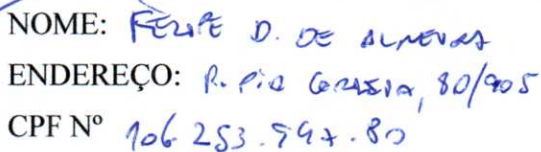 NOME: FELIPE D. DE ALMEIDA
ENDEREÇO: R. Pio Correia, 80/905
CPF Nº 106.253.997.80